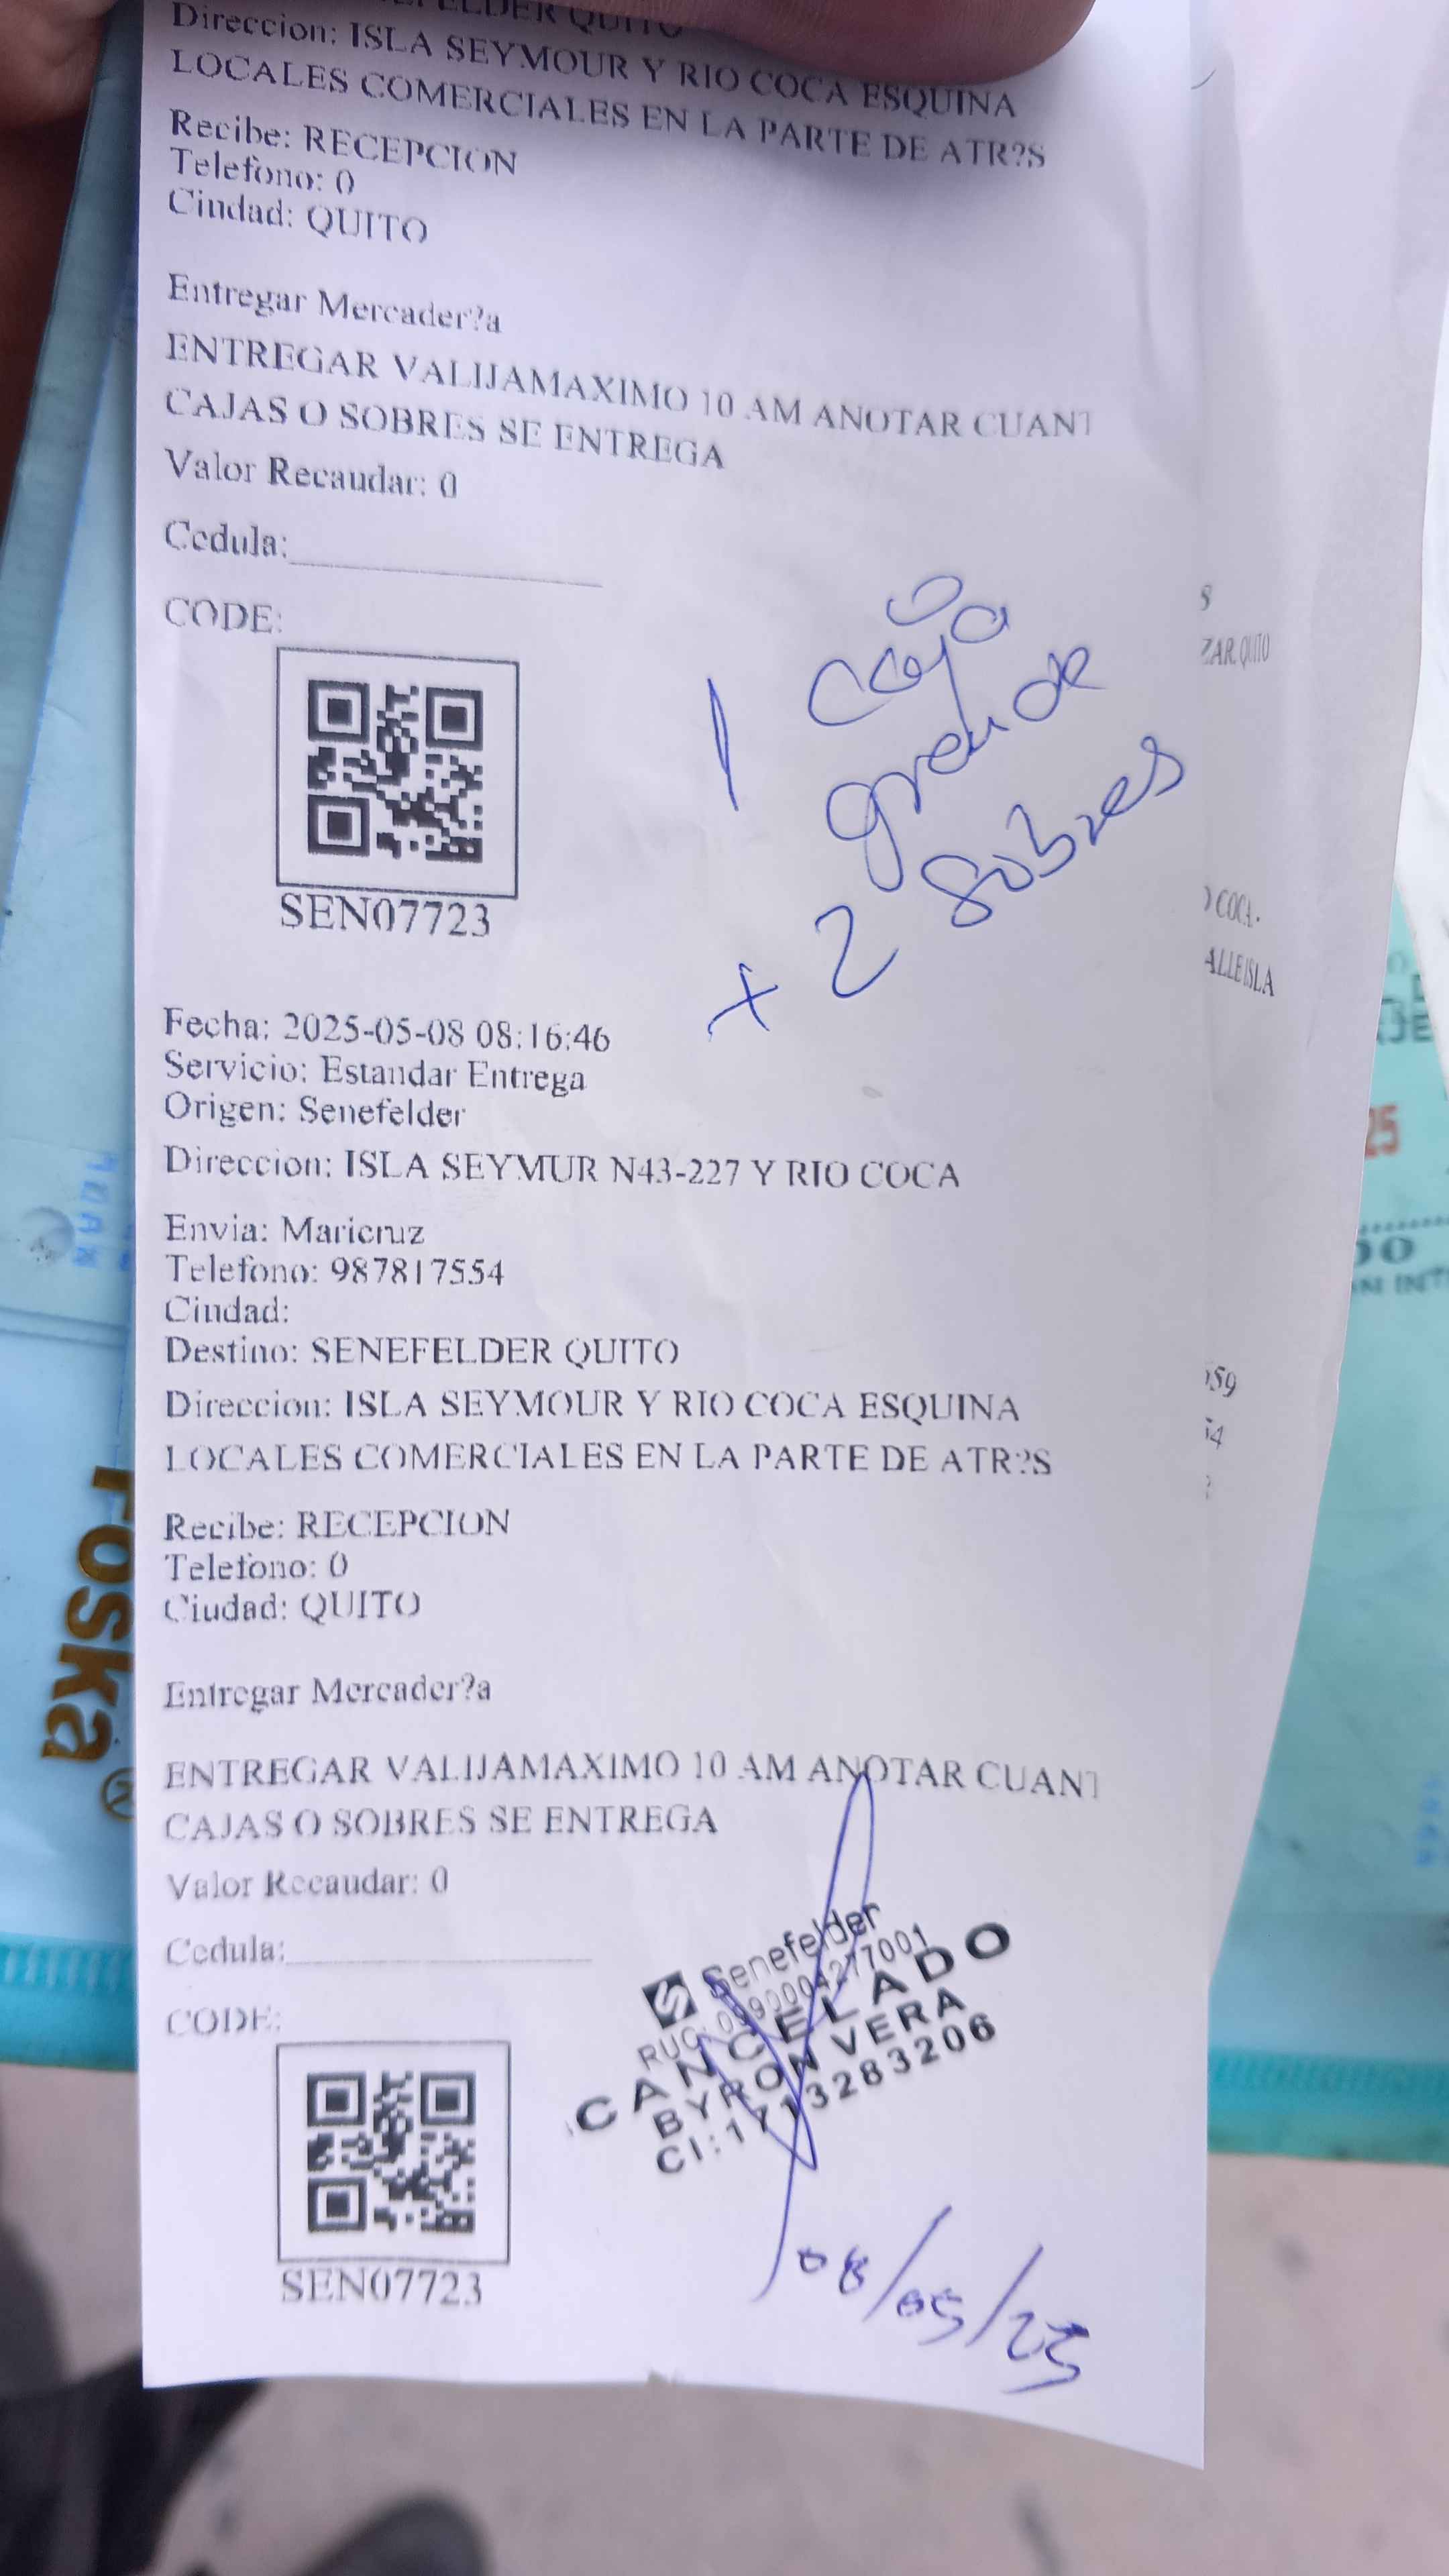 SENEFELDER QUITO
Direccion: ISLA SEYMOUR Y RIO COCA ESQUINA
LOCALES COMERCIALES EN LA PARTE DE ATR?S
Recibe: RECEPCION
Telefono: 0
Ciudad: QUITO
Entregar Mercader?a
ENTREGAR VALIJAMAXIMO 10 AM ANOTAR CUANT
CAJAS O SOBRES SE ENTREGA
Valor Recaudar: 0
Cedula:
CODE:
SEN07723
1 caja
grande
+ 2 sobres
Fecha: 2025-05-08 08:16:46
Servicio: Estandar Entrega
Origen: Senefelder
Direccion: ISLA SEYMUR N43-227 Y RIO COCA
Envia: Maricruz
Telefono: 987817554
Ciudad:
Destino: SENEFELDER QUITO
Direccion: ISLA SEYMOUR Y RIO COCA ESQUINA
LOCALES COMERCIALES EN LA PARTE DE ATR?S
Recibe: RECEPCION
Telefono: 0
Ciudad: QUITO
Entregar Mercader?a
ENTREGAR VALIJAMAXIMO 10 AM ANOTAR CUANT
CAJAS O SOBRES SE ENTREGA
Valor Recaudar: 0
Cedula:
CODE:
SEN07723
Senefelder
RUC:
CANCELADO
BYRON VERA
CI:1713283206
08/05/25
S
ZAR QUITO
O COCA -
ALLE ISLA
59
54
Foska®
25